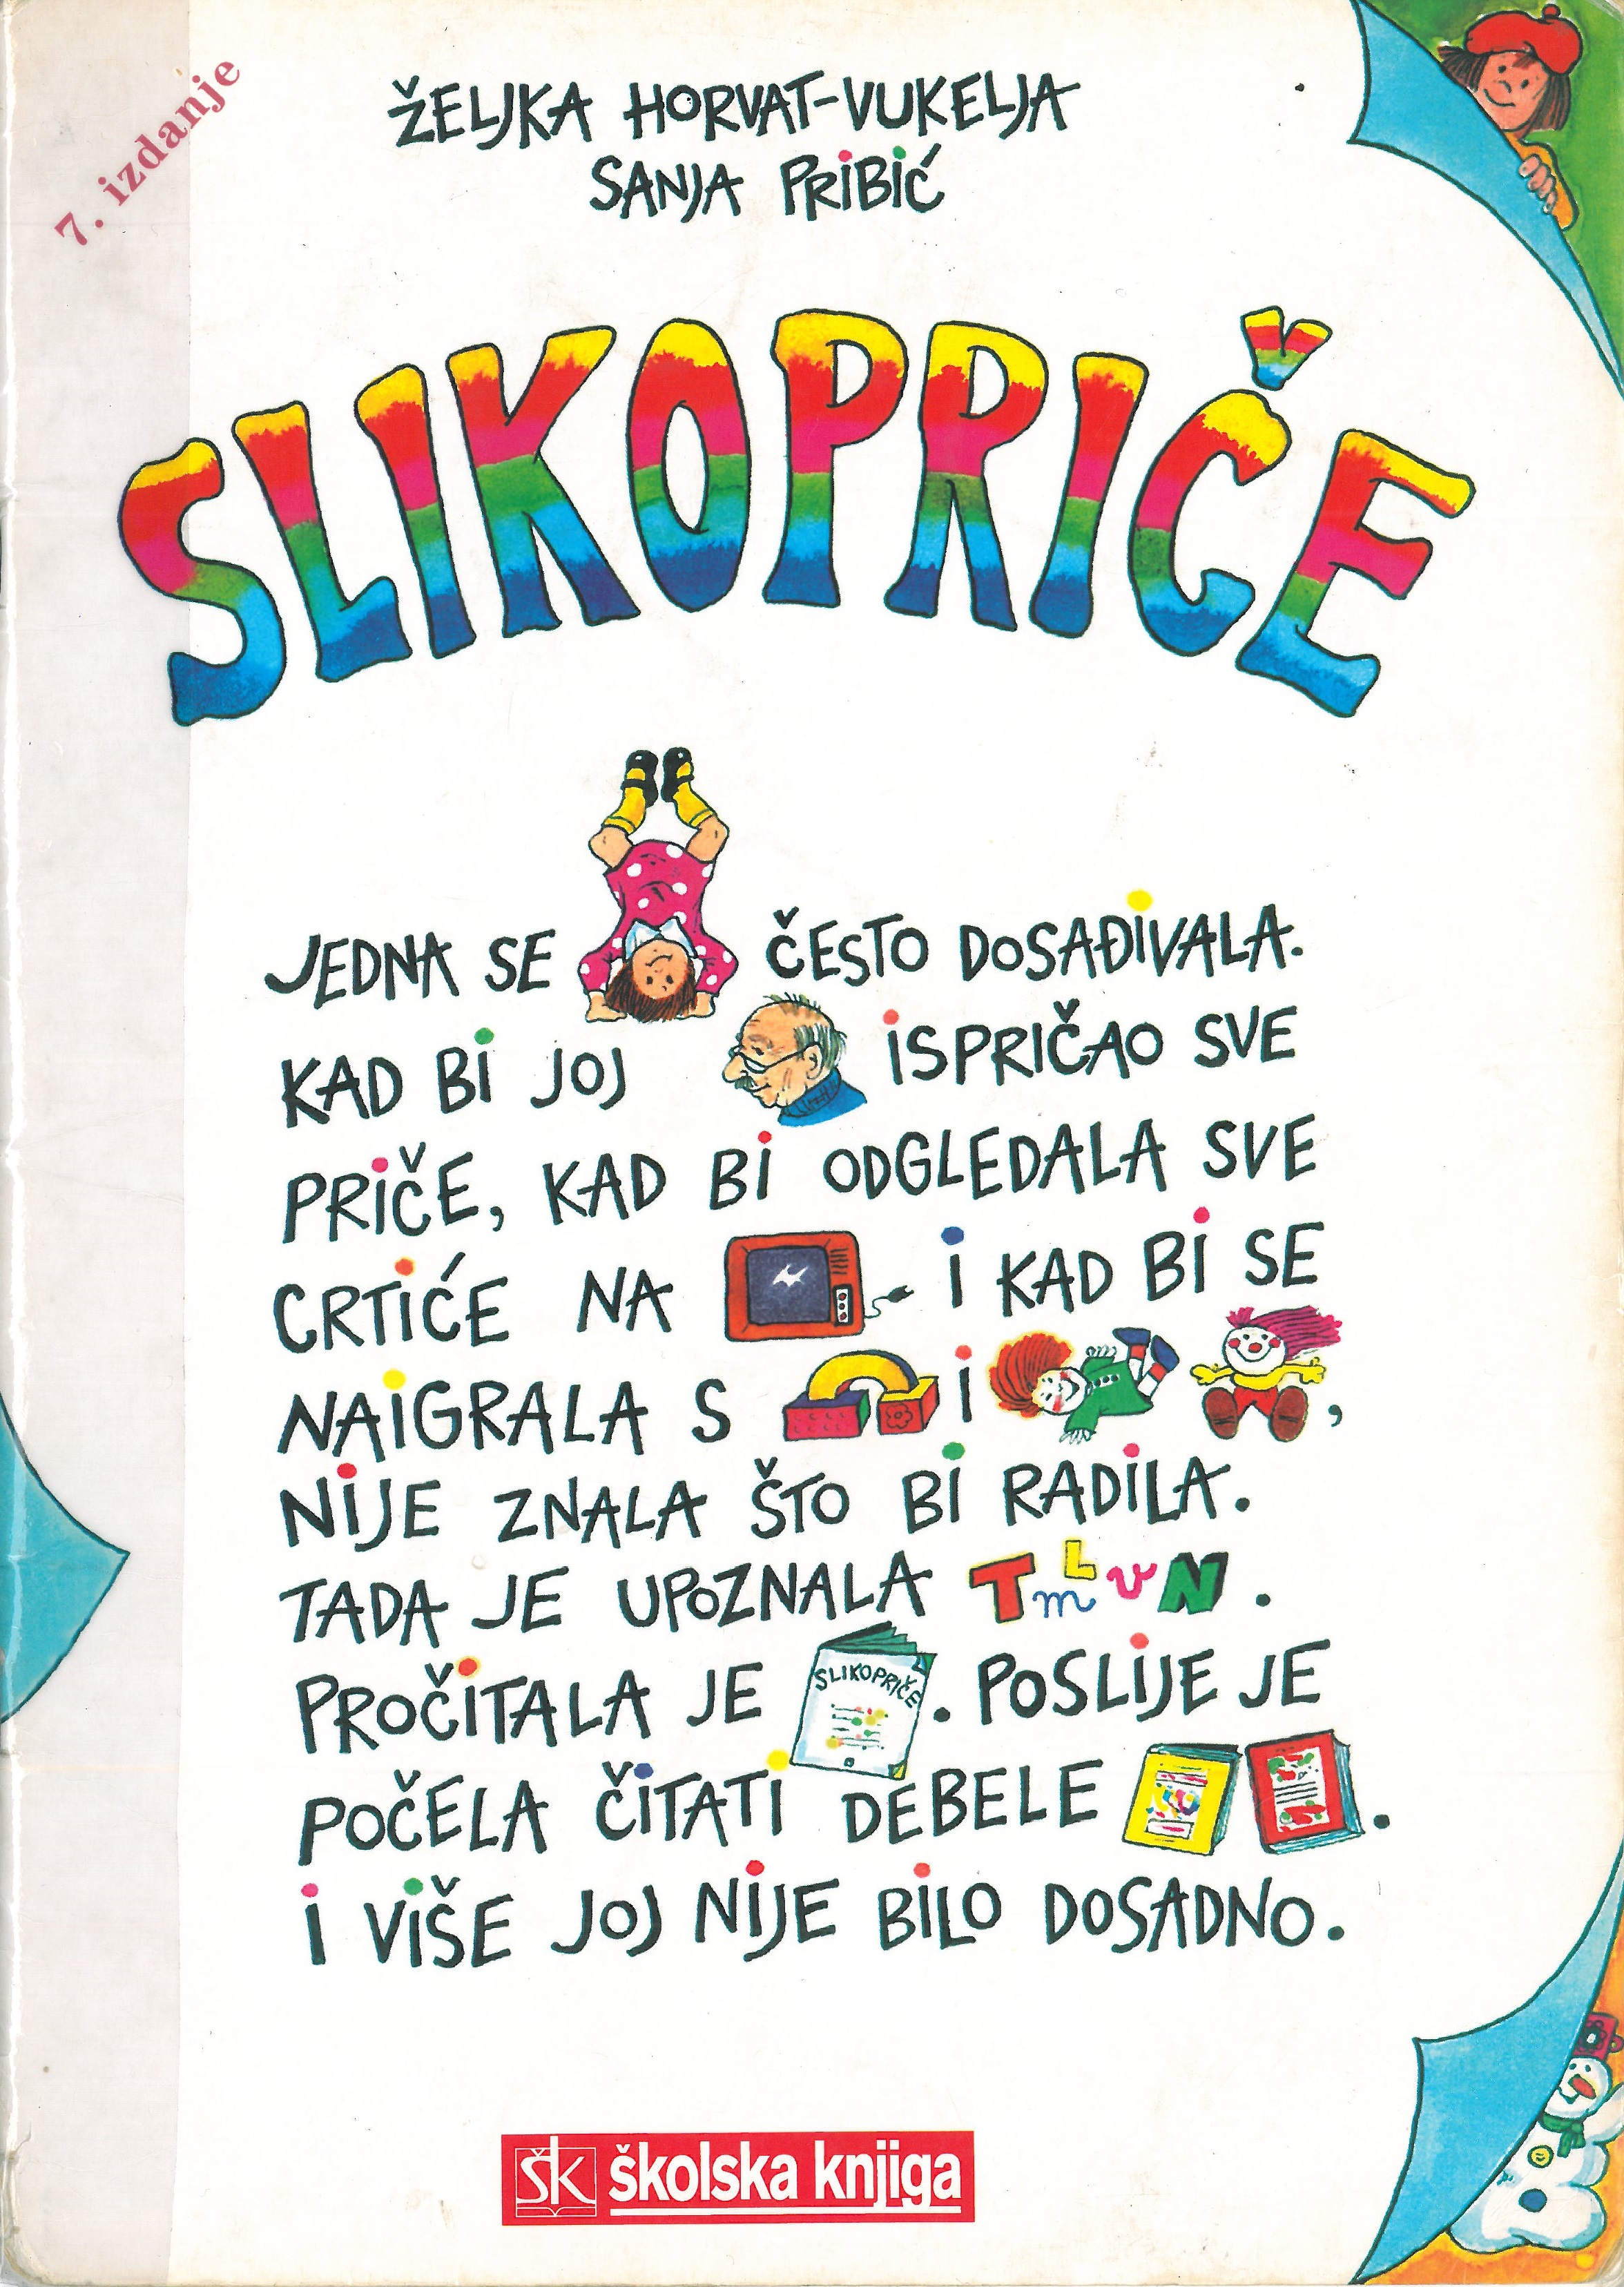 7. izdanje
ŽELJKA HORVAT-VUKELJA
SANJA PRIBIĆ
SLIKOPRIČE
JEDNA SE ČESTO DOSAĐIVALA.
KAD BI JOJ ISPRIČAO SVE
PRIČE, KAD BI ODGLEDALA SVE
CRTIĆE NA I KAD BI SE
NAIGRALA S I ,
NIJE ZNALA ŠTO BI RADILA.
TADA JE UPOZNALA T m L v N .
PROČITALA JE SLIKOPRIČE . POSLIJE JE
POČELA ČITATI DEBELE .
I VIŠE JOJ NIJE BILO DOSADNO.
ŠK školska knjiga